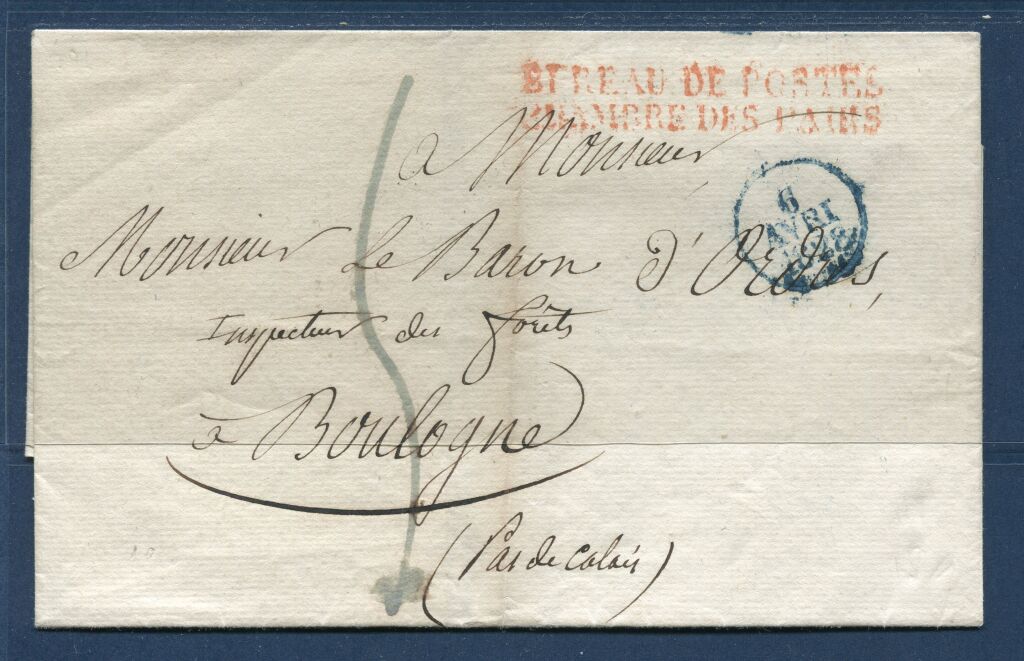 BUREAU DE POSTES
CHAMBRE DES PAIRS
6
AVRI
à Monsieur
Monsieur Le Baron d'Ordre,
Inspecteur des forêts
à Boulogne
(Pas de Calais)